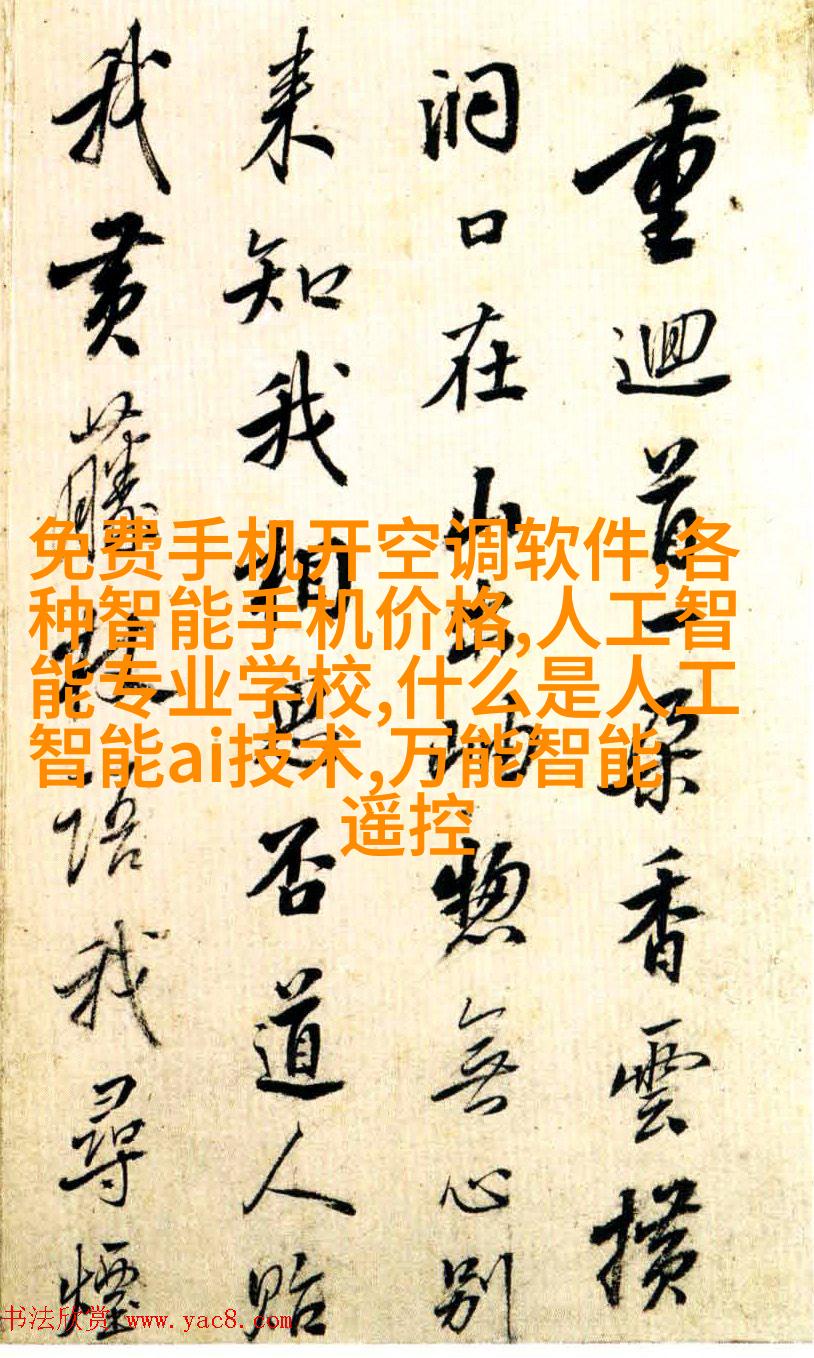 重迴首一朵香雲横
洞口在山岫惣無心别
来知我相思否道人貽
我黄藤杖語我尋煙
免费手机开空调软件,各
种智能手机价格,人工智
能专业学校,什么是人工
智能ai技术,万能智能
遥控
书法欣赏 www.yac8.com